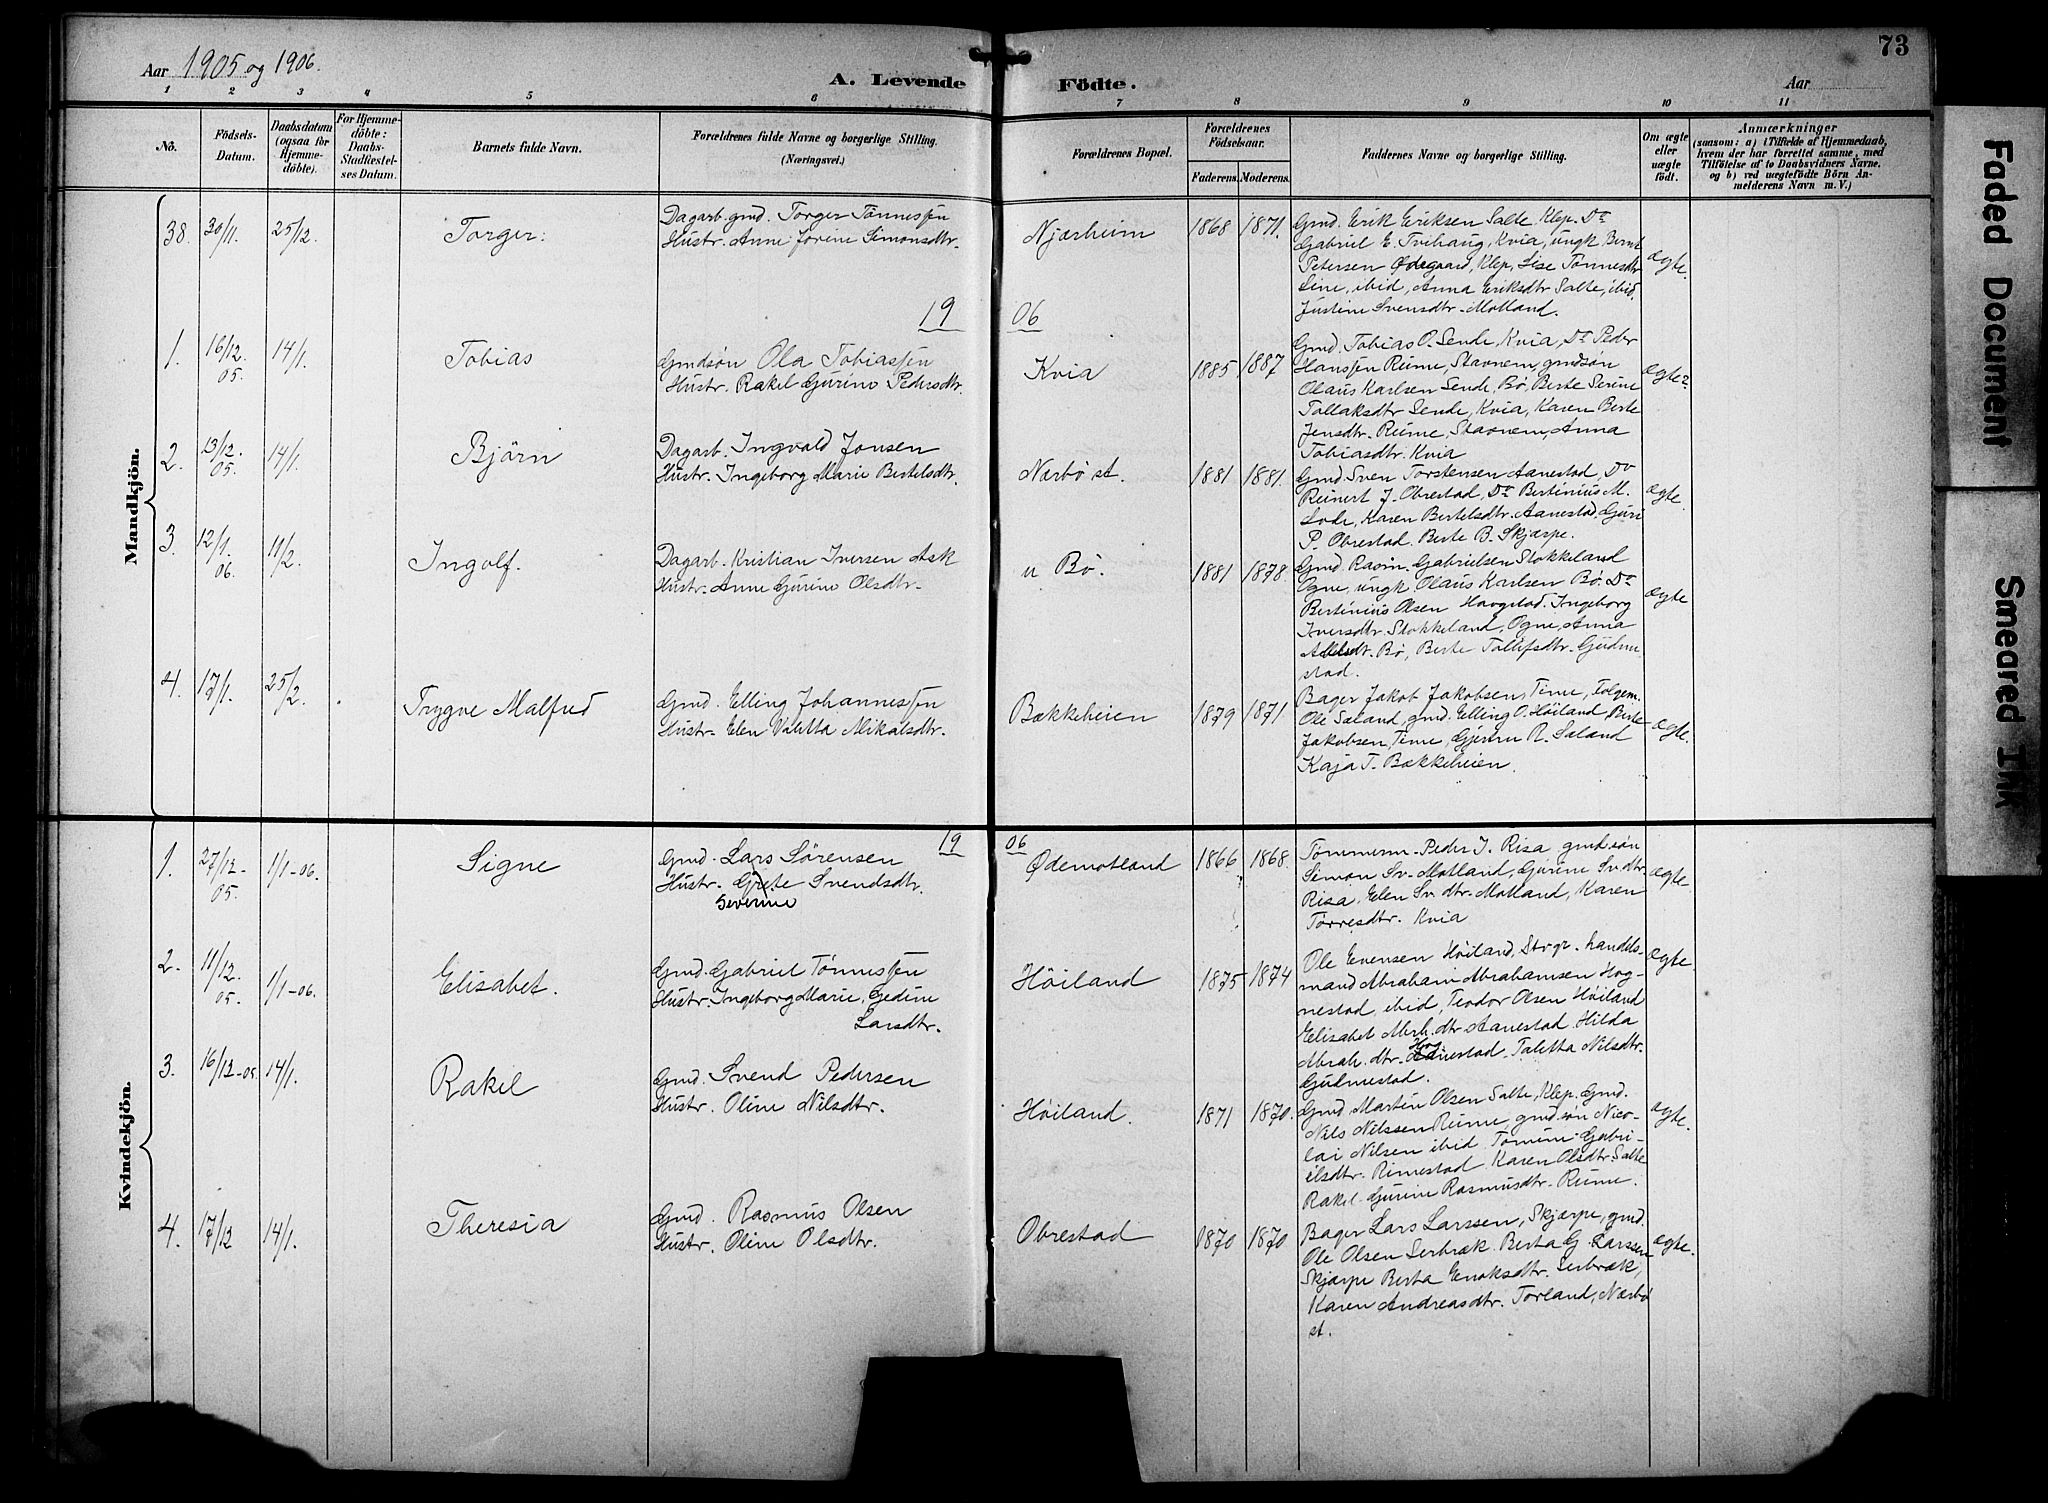 Aar 1905 og 1906.
A. Levende Födte.
Aar
73
1 2 3 4 5 6 7 8 9 10 11
No.
Födsels-Datum.
Daabsdatum (ogsaa for Hjemmedöbte).
For Hjemmedöbte: Daabs-Stadfæstelses Datum.
Barnets fulde Navn.
Forældrenes fulde Navne og borgerlige Stilling. (Næringsvei.)
Forældrenes Bopæl.
Forældrenes Födselsaar.
Faderens. Moderens.
Faddernes Navne og borgerlige Stilling.
Om ægte eller uægte født.
Anmærkninger
(saasom: a) i Tilfælde af Hjemmedaab, hvem der har forrettet samme, med Tilföielse af to Daabsvidners Navne. og b) ved uægtefödte Börn Anmelderens Navn m. V.)
Mandkjön.
38. 30/11. 25/12. Torger.
Dagarb. gmd. Torger Tönnessen
Hustr. Anne Jorine Simonsdtr.
Njærheim 1868 1871.
Gmd. Erik Eriksen Salte Klep. Do
Gabriel E. Tvihaug, Kvia, ungk Bernt
Petersen Ødegaard, Klep, Lise Tönnesdtr
Line, ibid, Anna Eriksdtr Salte, ibid.
Justine Svensdtr. Motland.
ægte.
19 06
1. 16/12 05. 14/1. Tobias
Gmdsön Ola Tobiassen
Hustr. Rakel Gurine Pedersdtr.
Kvia 1885 1887
Gmd. Tobias O. Sende, Kvia, Do Peder
Hanssen Reime, Stavnem, gmdsön
Olaus Karlsen Sende, Bø, Berte Serine
Tollaksdtr Sende, Kvia, Karen Berte
Jensdtr. Reime, Stavnem, Anna
Tobiasdtr. Kvia
ægte
2. 13/12. 05. 14/1. Bjørn
Dagarb. Ingvald Jonsen
Hustr. Ingeborg Marie Bertelsdtr.
Nærbö st. 1881 1881.
Gmd. Sven Torstensen Aanestad, Do
Reinert J. Obrestad, Do Bertinius M.
Lode, Karen Bertelsdtr. Aanestad, Guri
P. Obrestad. Berte B. Skjærpe.
ægte.
3. 12/1. 06. 11/2. Ingolf.
Dagarb. Kristian Iversen Ask
Hustr. Anne Gurine Olsdtr.
u Bø. 1881 1878.
Gmd. Rasm. Gabrielsen Stokkeland
Ogne, ungk Olaus Karlsen Bø. Do
Bertinius Olsen Haugstad. Ingeborg
Iversdtr. Stokkeland, Ogne, Anna
Bø, Berte Tollefsdtr. Gudme
stad.
ægte
4. 17/1. 25/2. Trygve Malfred
Gmd. Elling Johannessen
Hustr. Elen Valetta Mikalsdtr.
Bækkeheien 1879 1871
Bager Jakob Jakobsen, Time,
Ole Sæland, gmd. Elling O. Høiland, Berte
Jakobsen, Time, R. Sæland
Kaja T. Bækkeheien.
ægte.
Kvindekjön.
19 06
1. 27/12 05. 1/1-06. Signe
Gmd. Lars Sörensen
Hustr. Grete Svendsdtr.
Severine
Ødemotland 1866 1868.
Tömmerm. Peder J. Risa gmdsön
Simon Sv. Motland, Gurine Sv.dtr
Risa, Elen Sv.dtr. Motland, Karen
Torresdtr. Kvia
ægte
2. 11/12 05. 1/1-06. Elisabet.
Gmd. Gabriel Tønnessen
Hustr Ingeborg Marie Gedine
Larsdtr.
Høiland 1875 1874
Ole Evensen Høiland, Stvgr. handels-
mand Abraham Abrahamsen Hog-
nestad, ibid, Teodor Olsen Høiland
Elisabet Abrh. dtr Aanestad. Hilda
Abrah. dtr. Hognestad. Taletta Nilsdtr.
Gudmestad.
ægte.
3. 16/12-05. 14/1. Rakel
Gmd. Svend Pedersen
Hustr. Oline Nilsdtr.
Høiland. 1871 1870.
Gmd. Martin Olsen Salte, Klep. Gmd.
Nils Nilssen Reime, gmd.sön Nico-
lai Nilsen ibid. Tomine Gabri-
elsdtr. Rimestad. Karen Olsdtr. Salte
Rakel Gurine Rasmusdtr. Reime.
ægte.
4. 17/12 14/1. Theresia
Gmd. Rasmus Olsen
Hustr. Oline Olsdtr.
Obrestad 1870 1870
Bager Lars Larssen, Skjærpe, gmd.
Ole Olsen Serbræk. Berta G. Larssen
Skjærpe Berta Enoksdtr. Serbræk,
Karen Andreasdtr. Torland, Nærbø
st.
ægte.
Faded Document
Smeared Ink